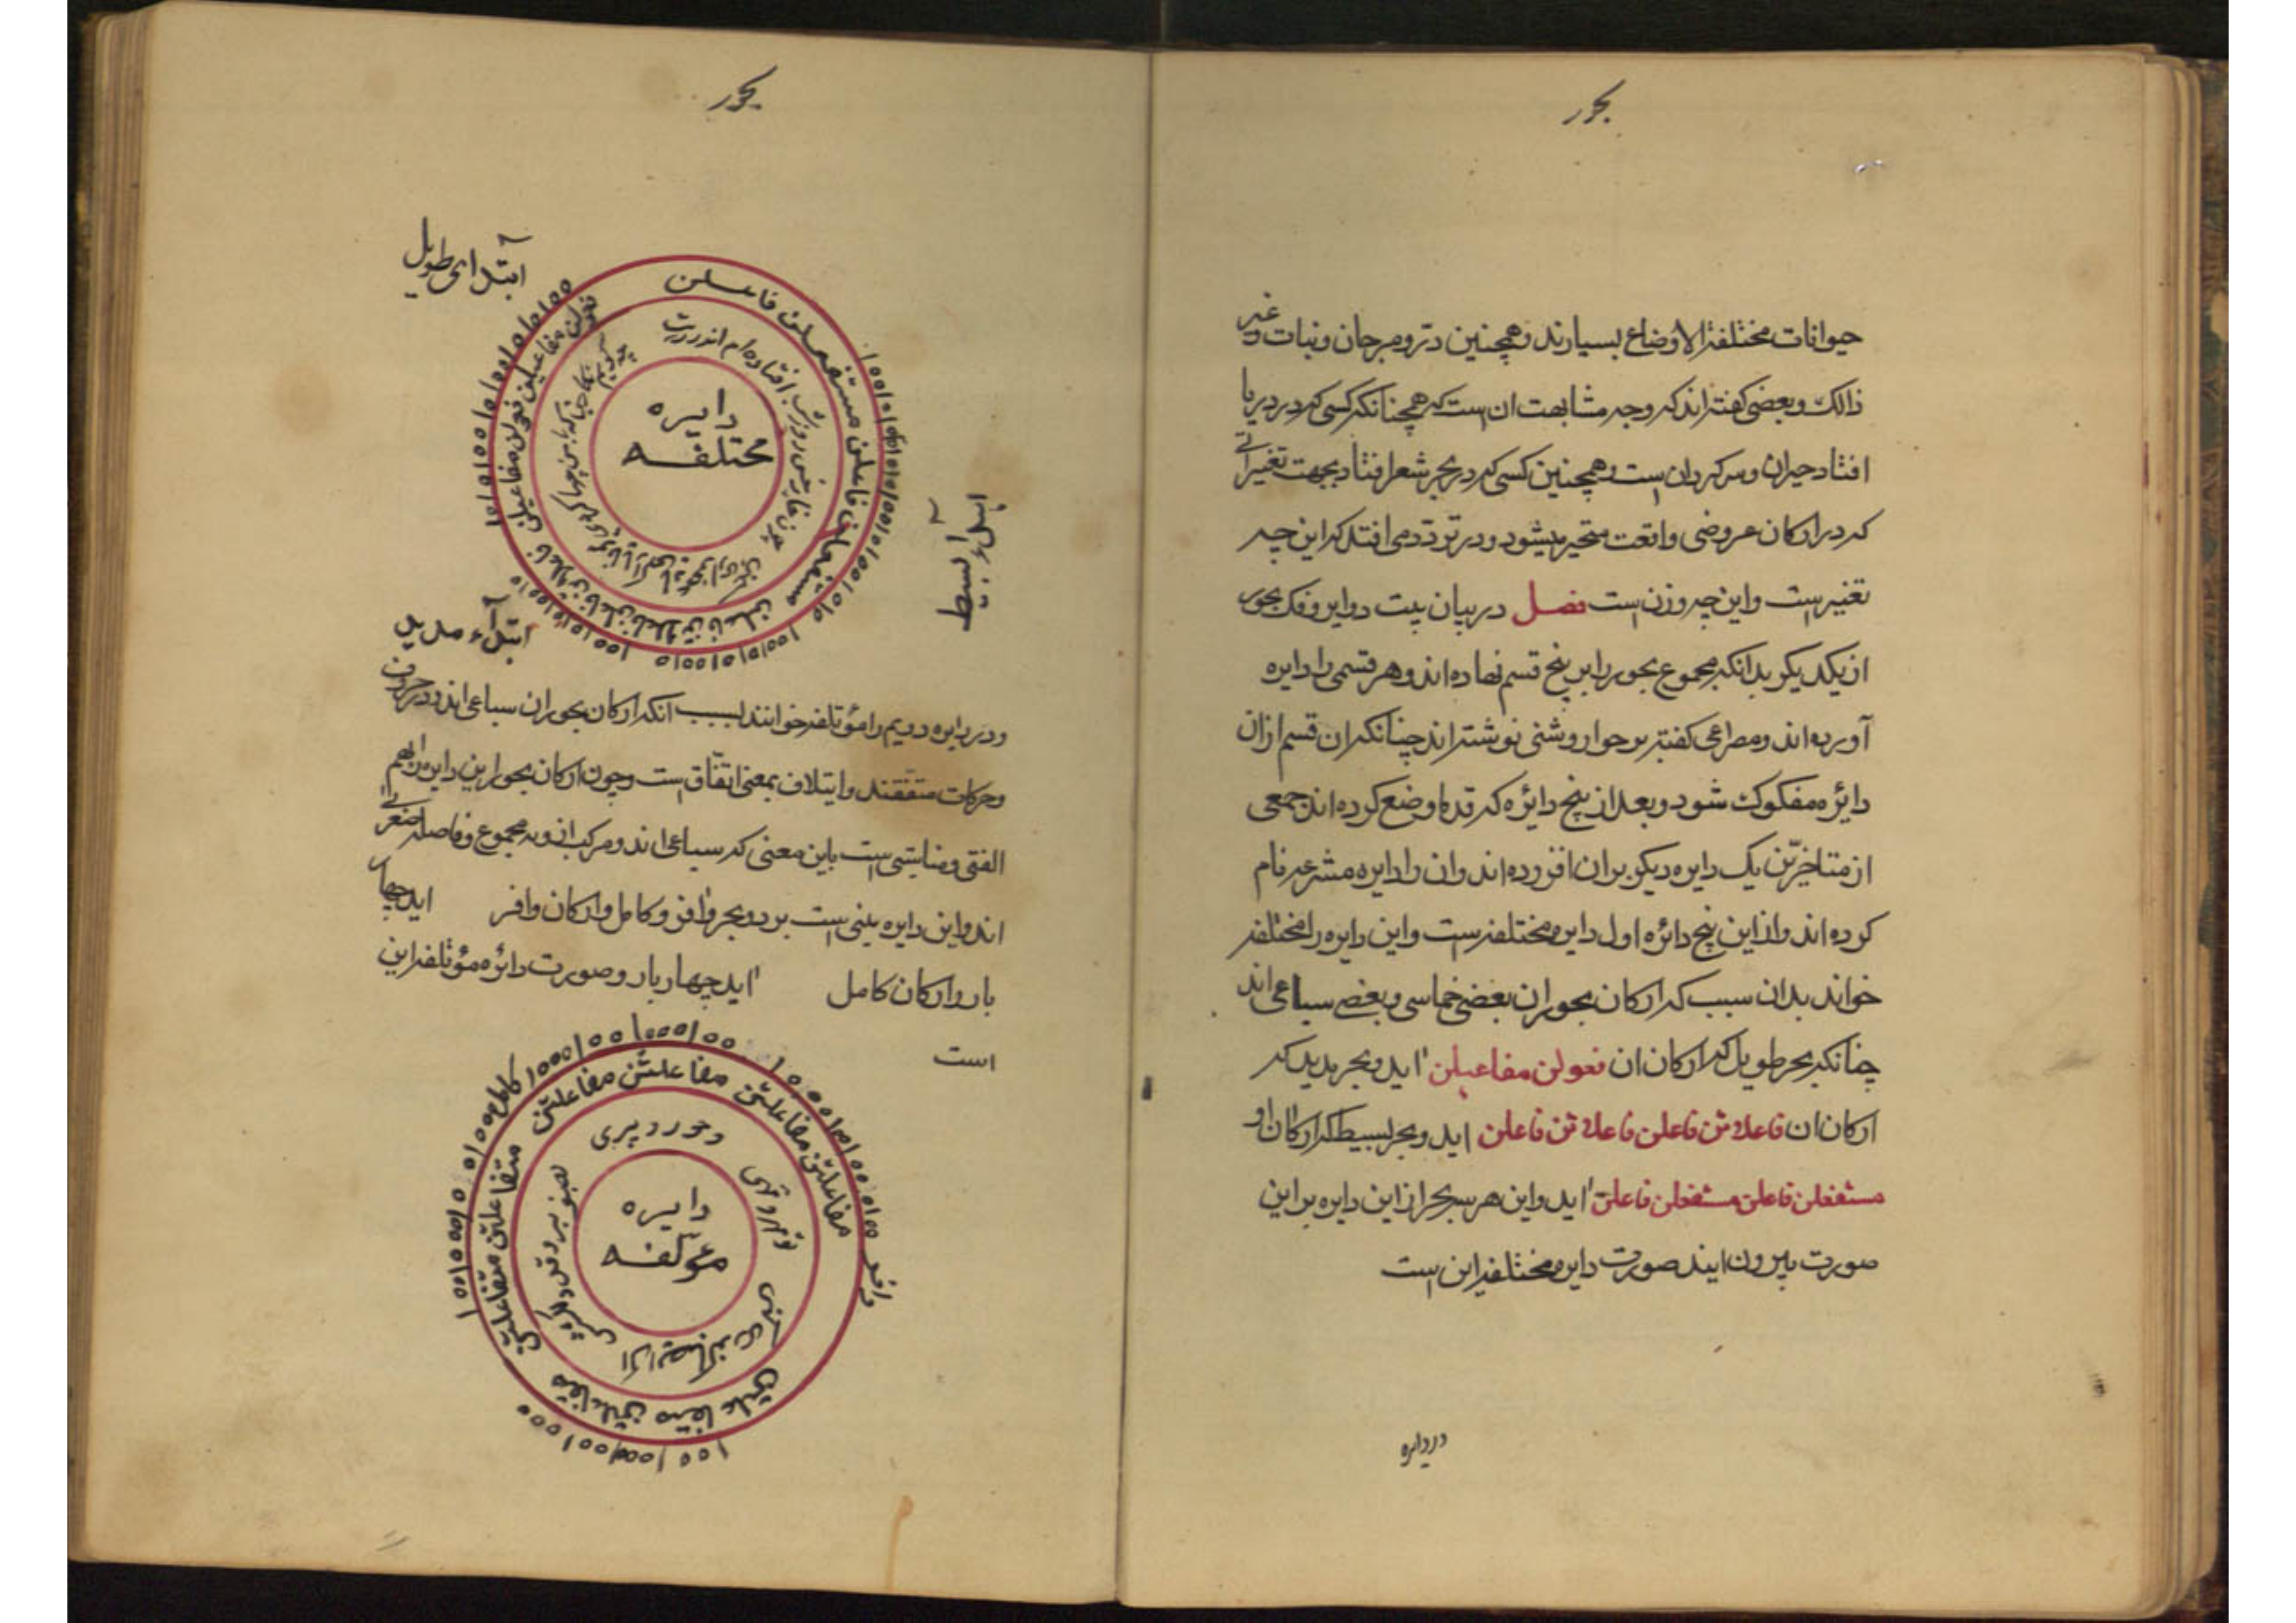 بحور
حیوانات مختلفة الاوضاع بسیارند و همچنین درّ و مرجان و نبات و غیر
ذالک و بعضی کفته اند که وجه مشابهت ان است که همچنانکه کسی که در دریا
افتاد حیران و سرکردان است و همچنین کسی که در بحر شعر افتاد بجهت تغییراتی
که در ارکان عروضی واقعت متحیر میشود و در تردد می افتد که این چه
تغییر است و این چه وزن است فصل در بیان بیت دوایر و فک بحور
از یکدیکر بدانکه مجموع بحور را بر پنج قسم نهاده اند و هر قسمی را دایره
آورده اند و مصراعی کفته بر حوار وشنی نوشته اند چنانکه ان قسم از ان
دائره مفکوک شود و بعد از پنج دائره که قدما وضع کرده اند جمعی
از متاخرّین یک دایره دیکر بران افزوده اند و ان را دایره مشرعه نام
کرده اند و از این پنج دائره اول دایره مختلفه است و این دایره را مختلفه
خواند بدان سبب که ارکان بحور ان بعضی خماسی و بعضی سباعی اند
چنانکه بحر طویل که ارکان ان فعولن مفاعیلن اید و بحر مدید که
ارکان ان فاعلاتن فاعلن فاعلاتن فاعلن اید و بحر بسیط که ارکان او
مستفعلن فاعلن مستفعلن فاعلن اید و این هر سه بحر از این دایره بر این
صورت بیرون ایند صورت دایره مختلفه این است
در دایره
بحور
ابتدای طویل
فعولن مفاعیلن فعولن مفاعیلن
مستفعلن فاعلن مستفعلن فاعلن
فاعلاتن فاعلن فاعلاتن فاعلن
دایره
مختلفه
ابتدآء بسیط
ابتدآء مدید
و در دایره دویم را مؤتلفه خوانند بسبب انکه ارکان بحور ان سباعی اند و در حروف
و حرکات متفقند و ایتلاف بمعنی اتفّاق است و چون ارکان بحور این دایره را بهم
الفتی و مناسبتی است باین معنی که سباعی اند و مرکب از وتد مجموع و فاصله صغرائی
اند و این دایره مبنی است بر دو بحر وافر و کامل و ارکان وافر اید چهار
بار و ارکان کامل اید چهار بار و صورت دائره مؤتلفه این
است
کامل
مفاعلتن مفاعلتن مفاعلتن مفاعلتن
متفاعلتن متفاعلتن متفاعلتن متفاعلتن
دایره
مؤلفه
وافر